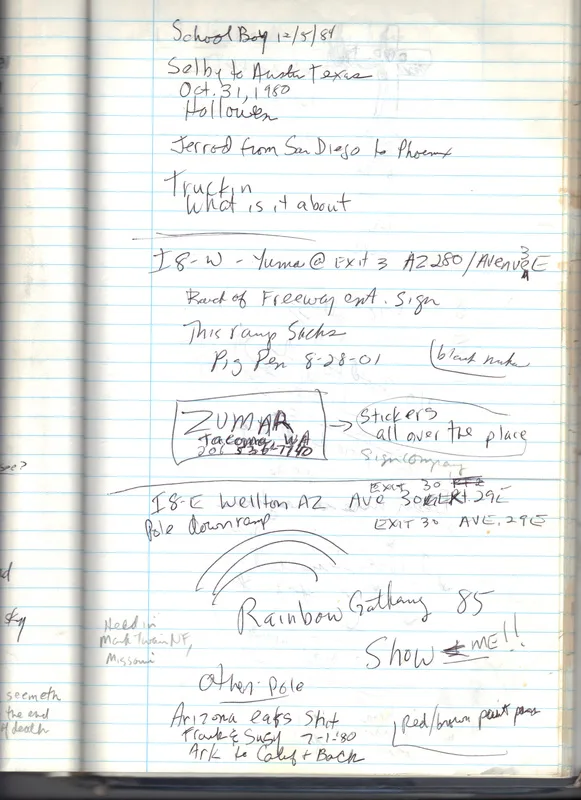 School Boy 12/5/84
Selby to Austn Texas
Oct. 31, 1980
Hollowen
Jerrod from San Diego to Phoenix
Truckin
What is it about
I8-W - Yuma @ Exit 3 AZ 280/Avenue 3E
Back of Freeway ent. Sign
This ramp Sucks
Pig Pen 8-28-01
black
ZUMAR
Tacoma, WA
Stickers
all over the place
Sign company
Exit 30
I8-E Wellton AZ Ave 29E
Pole down ramp
EXIT 30 AVE. 29E
Rainbow Gathang 85
Held in
Mark Twain NF,
Missouri
Show ME!!
Other Pole
Arizona eats Shit
Frank & Susy 7-1-80
Ark to Calif + Back
Red/brown paint
see?
d
sky
seemeth
the end
of death